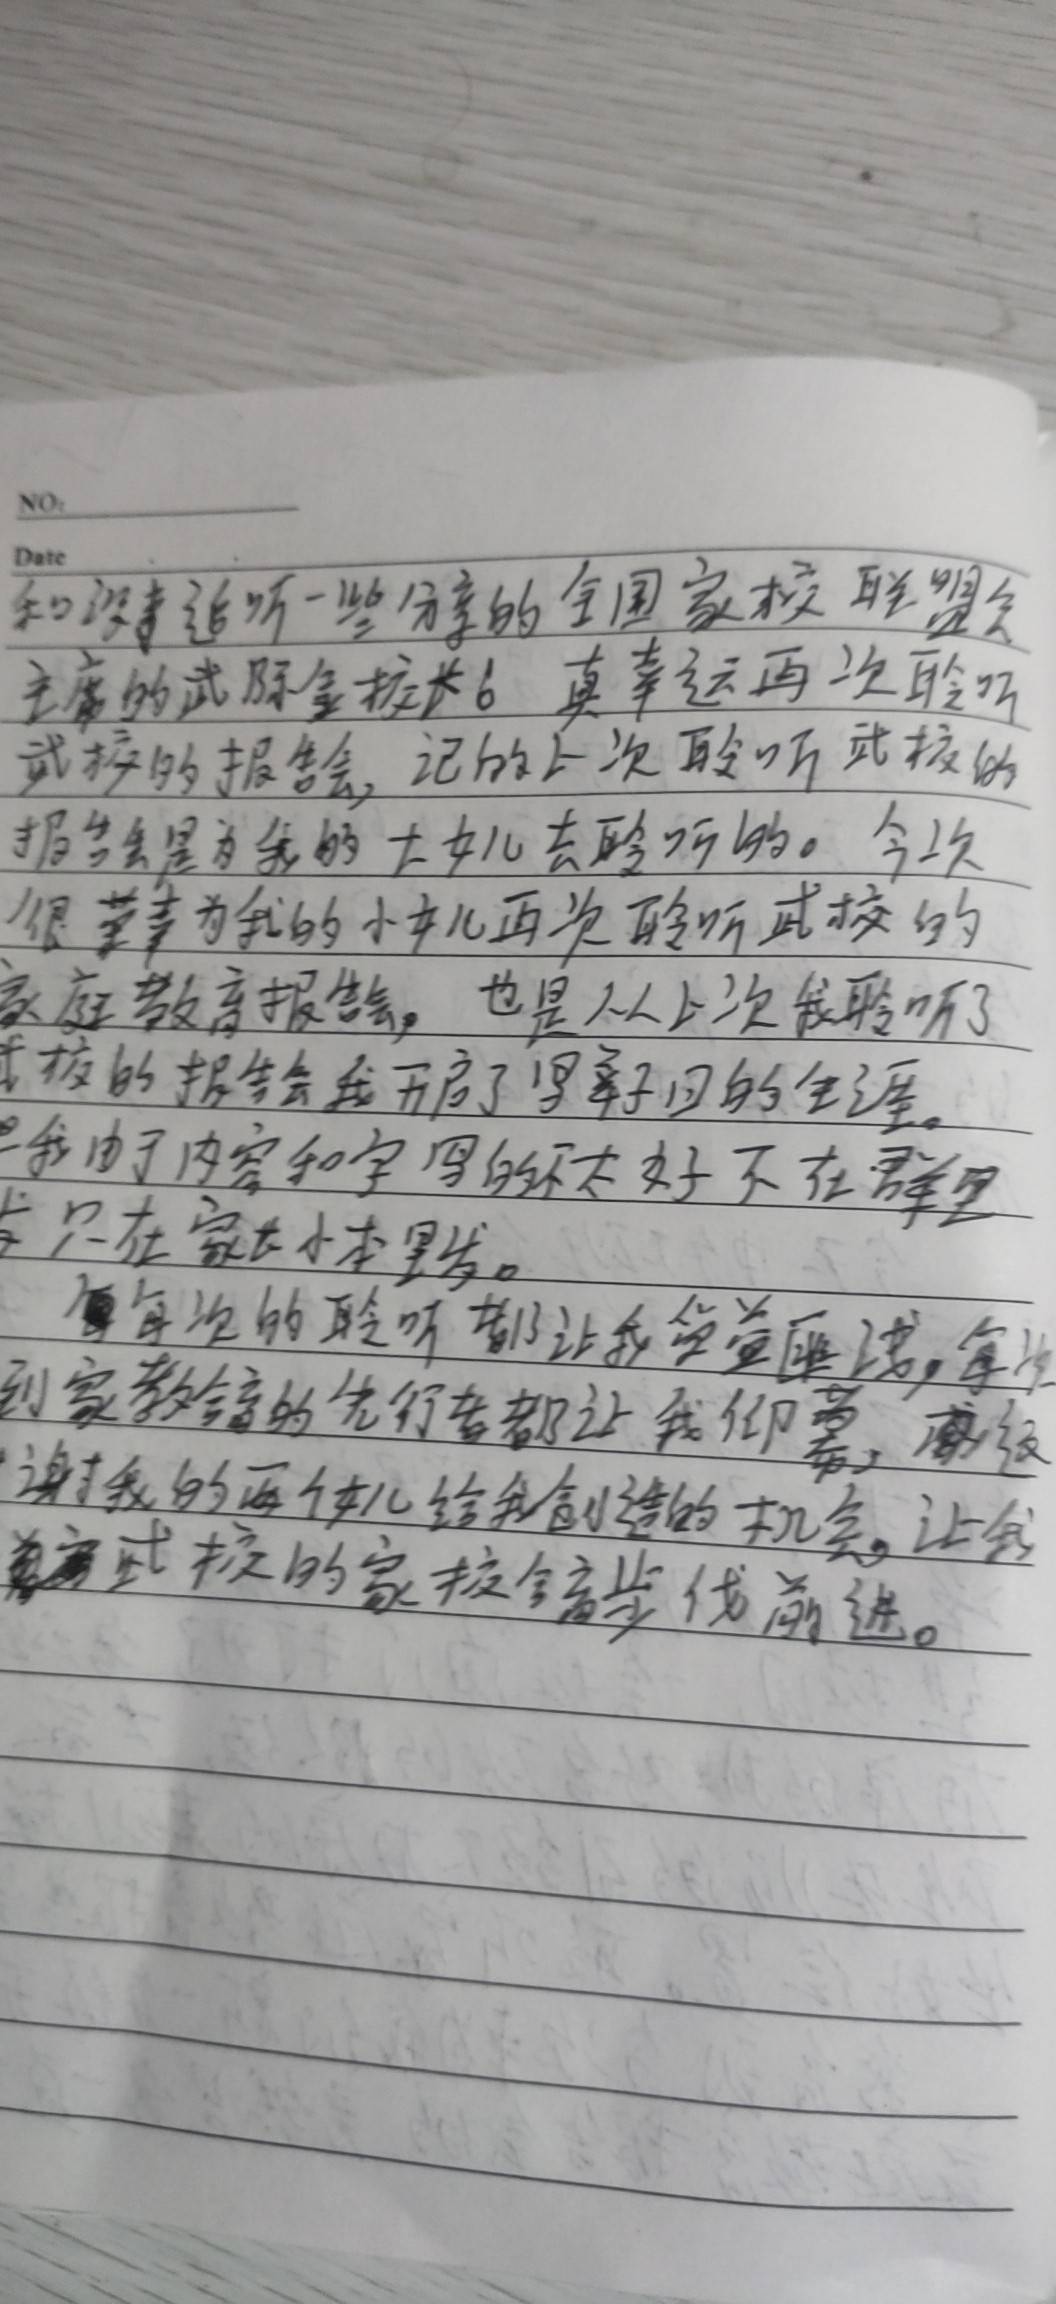 NO:
Date
和没事追听一些分享的全国家校联盟会
主席的武际金校长。真幸运再次聆听
武校的报告会,记的上次聆听武校的
报告会是为我的大女儿去聆听的。今次
很荣幸为我的小女儿再次聆听武校的
家庭教育报告会,也是从上次我聆听了
武校的报告会我开启了写亲子日的生涯。
我由于内容和字写的不太好不在群里
发只在家长小本里发。
每次的聆听都让我受益匪浅,每次
到家教会的先行者都让我仰慕,感
谢我的两个女儿给我创造的机会,让我
武校的家校合育步伐前进。